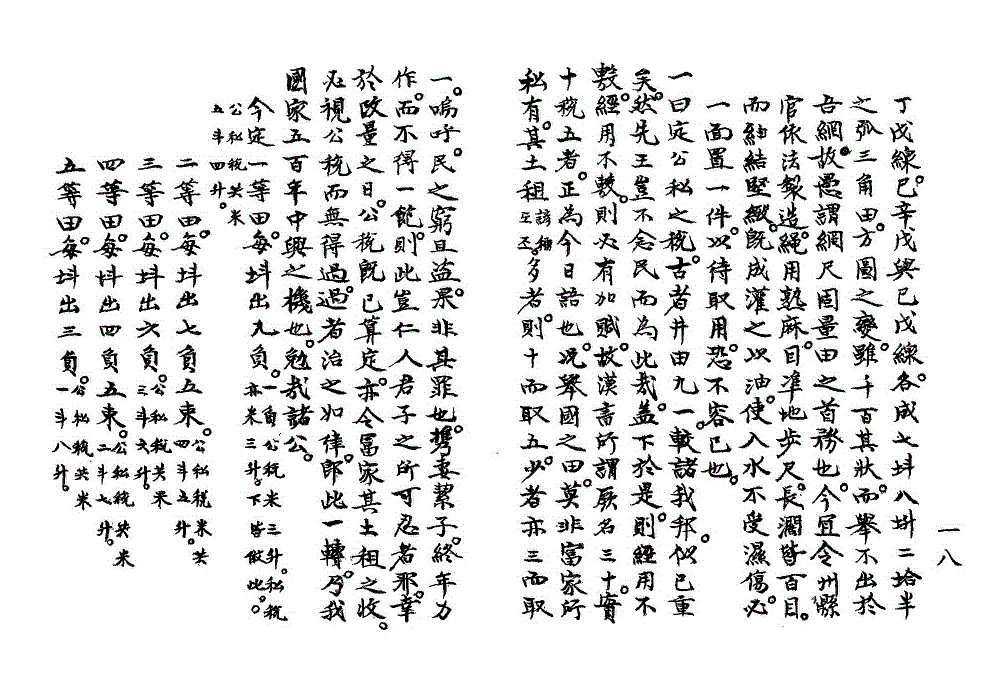 一八
丁戊線己辛戊與己戊線各成七㪷八㪷二㪲半
之弧三角田方圓之變雖千百其狀而舉不出於
吾網故愚謂網尺固量田之首務也今宜令州縣
官依法製造繩用熟麻目準地步尺長濶皆百目
而紬結堅緻旣成灌之以油使入水不受濕傷必
一面置一件以待取用恐不容已也
一曰定公私之稅古者井田九一較諸我邦似已重
矣然先王豈不念民而為此哉蓋下於是則經用不
敷經用不敷則必有加賦故漢書所謂厥名三十實
十稅五者正為今日語也況舉國之田莫非富家所
私有其土租諺稱至丕多者則十而取五少者亦三而取
一嗚呼民之窮且盜果非其罪也携妻絜子終年力
作而不得一飽則此豈仁人君子之所可忍者耶幸
於改量之日公稅旣已算定亦令冨家其土租之收
必視公稅而無得過過者治之如律卽此一轉乃我
國家五百年中興之機也勉哉諸公
今定一等田每㪷出九負一負公稅米三升私稅亦米三升下皆倣此
公私稅共米五斗四升
二等田每㪷出七負五束公私稅米共四斗五升
三等田每㪷出六負公私稅共米三斗六升
四等田每㪷出四負五束公私稅共米二斗七升
五等田每㪷出三負公私稅共米一斗八升